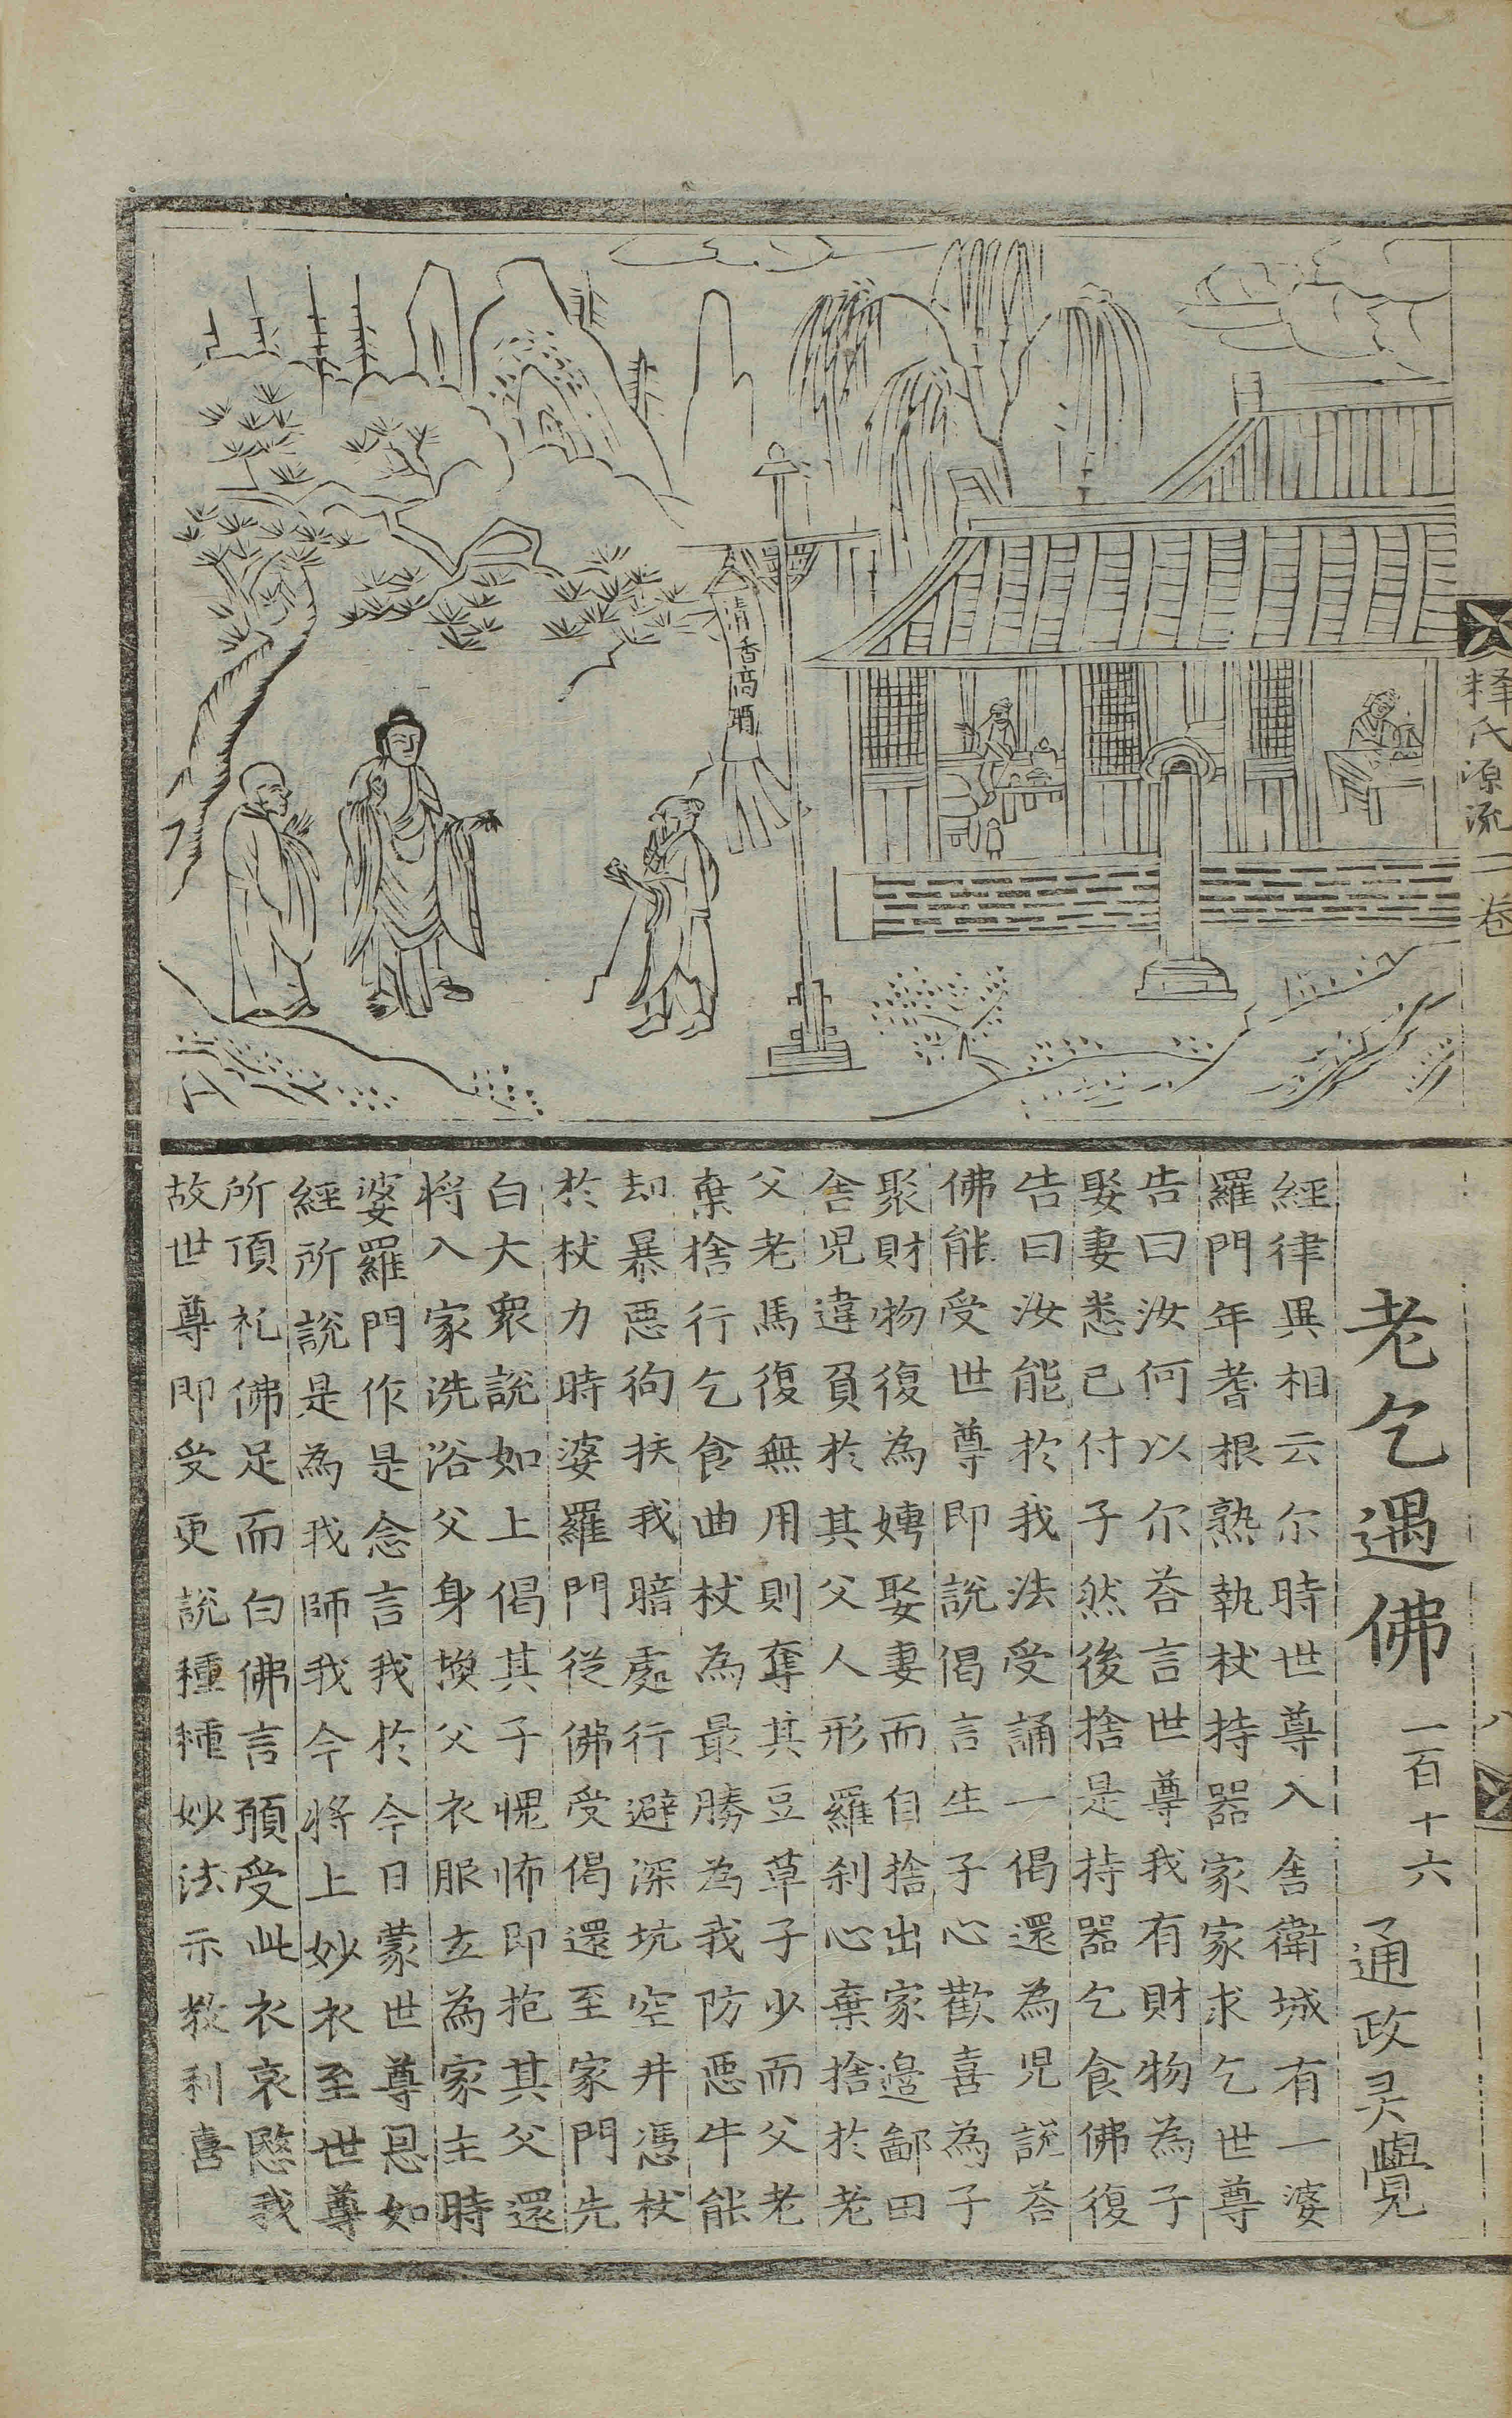 釋氏源流一卷
八
清香高酒
老乞遇佛 一百十六 通政灵覺
經律異相云尔時世尊入舎衛城有一婆
羅門年耆根熟執杖持器家家求乞世尊
告曰汝何以尔荅言世尊我有財物為子
娶妻悉已付子然後捨是持器乞食佛復
告曰汝能於我法受誦一偈還為児説荅
佛能受世尊即說偈言生子心歡喜為子
聚財物復為娉娶妻而自捨出家邉鄙田
舎児違負於其父人形羅剎心棄捨於老
父老馬復無用則奪其豆草子少而父老
棄捨行乞食曲杖為最勝為我防惡牛能
却暴惡狗扶我暗處行避深坑空井憑杖
於杖力時婆羅門從佛受偈還至家門先
白大衆說如上偈其子愰怖即抱其父還
将入家洗浴父身換父衣服立為家主時
婆羅門作是念言我於今日蒙世尊恩如
經所說是為我師我今将上妙衣至世尊
所頂礼佛足而白佛言願受此衣哀愍我
故世尊即受更說種種妙法示教利喜